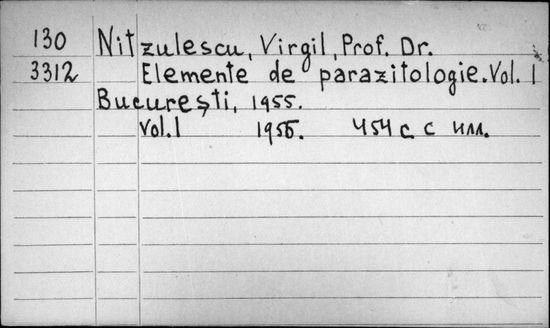 130 Nitzulescu, Virgil, Prof. Dr.
3312 Elemente de parazitologie. Vol. 1
Bucureşti, 1955.
Vol. 1 1955. 454 с. с илл.